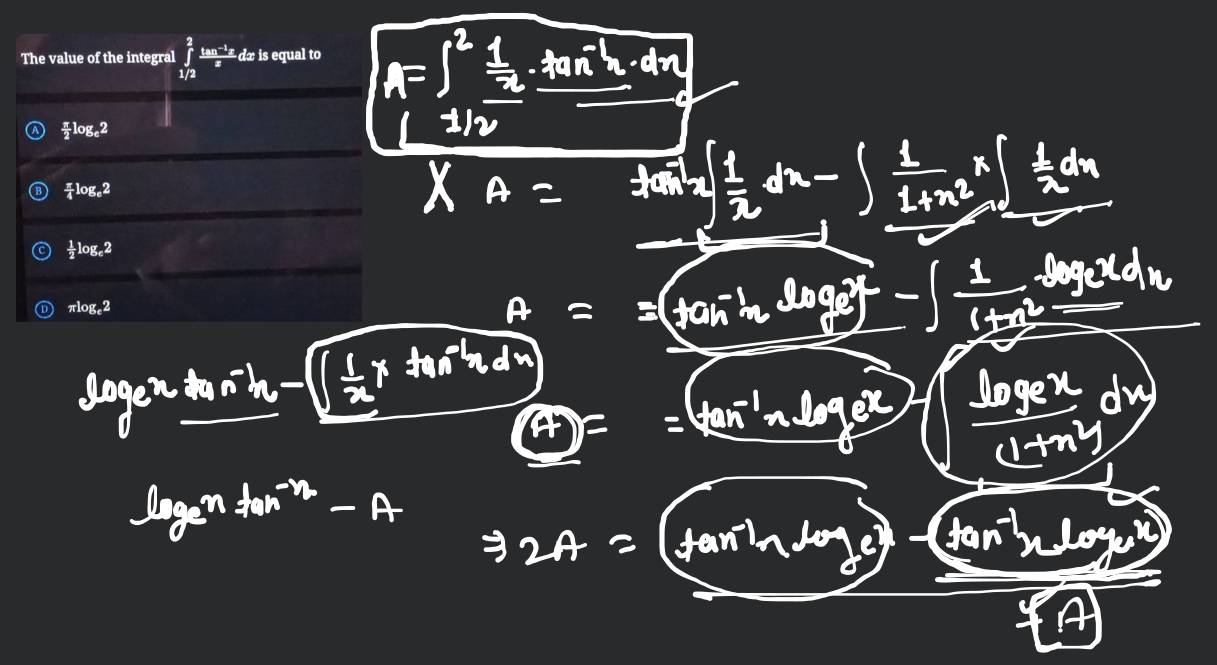 The value of the integral ∫_{1/2}^{2} tan⁻¹x/x dx is equal to
A π/2 logₑ2
B π/4 logₑ2
C 1/2 logₑ2
D π logₑ2
A = ∫_{1/2}^{2} 1/x · tan⁻¹x · dx
X A = tan⁻¹x ∫ 1/x · dx − ∫ 1/(1+x²) × ∫ 1/x dx
A = = tan⁻¹x logₑx − ∫ 1/(1+x²) · logₑx dx
logₑx tan⁻¹x − ∫ 1/x × tan⁻¹x dx
A = = tan⁻¹x logₑx − ∫ logₑx/(1+x²) dx
logₑx tan⁻ˣ − A
⇒ 2A = tan⁻¹x logₑx − tan⁻¹x logₑx
+ A